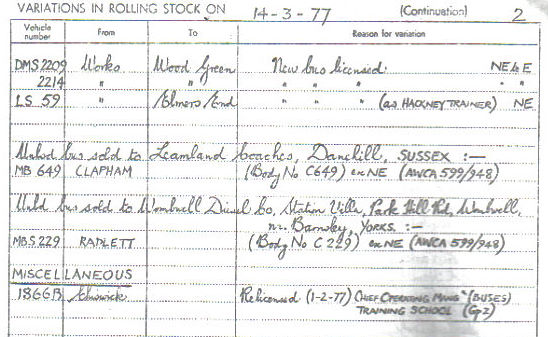 VARIATIONS IN ROLLING STOCK ON 14-3-77 (Continuation) 2
Vehicle number From To Reason for variation
DMS 2209 Works Wood Green New bus licensed. NE to E
2214 " " " " " " "
LS 59 " Elmers End " " " (as HACKNEY TRAINER) NE
bus sold to Leamland Coaches, Danehill, SUSSEX :—
MB 649 CLAPHAM (Body No C649) ex NE (AWCA 599/948)
bus sold to Wombwell Diesel Co, Station Villa, Park Hill Rd, Wombwell,
nr. Barnsley, YORKS. :—
MBS 229 RADLETT (Body No C 229) ex NE (AWCA 599/948)
MISCELLANEOUS
1866B Chiswick Relicensed (1-2-77) CHIEF OPERATING MANG (BUSES)
TRAINING SCHOOL (Gp2)